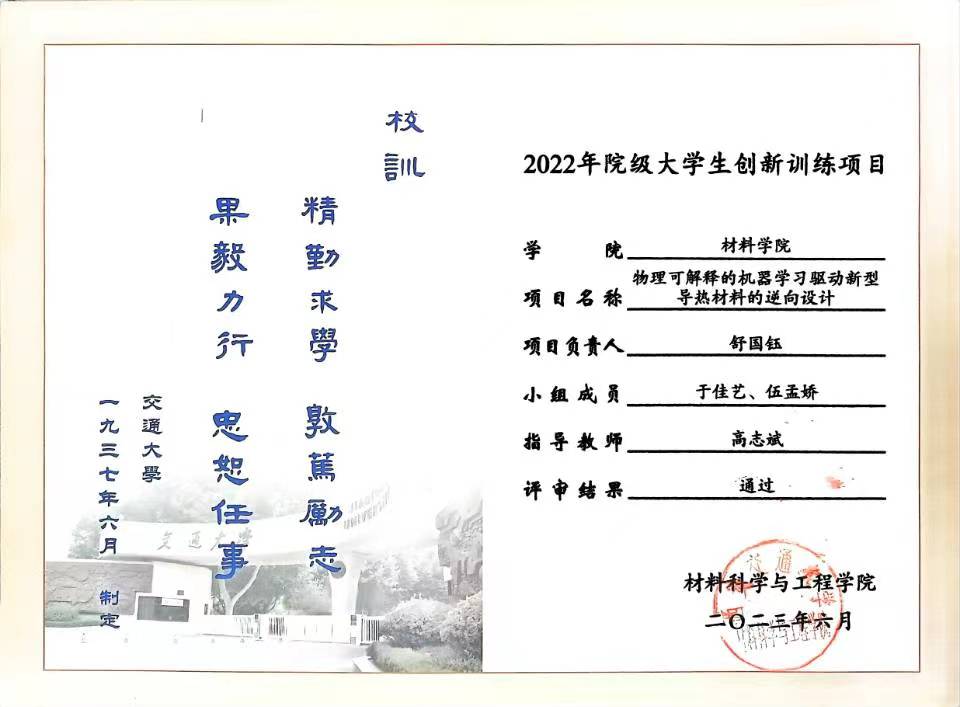 校訓
精勤求學 敦篤勵志
果毅力行 忠恕任事
交通大學
一九三七年六月 制定
交通大学
2022年院级大学生创新训练项目
学院 材料学院
项目名称 物理可解释的机器学习驱动新型
导热材料的逆向设计
项目负责人 舒国钰
小组成员 于佳艺、伍孟娇
指导教师 高志斌
评审结果 通过
材料科学与工程学院
二〇二三年六月